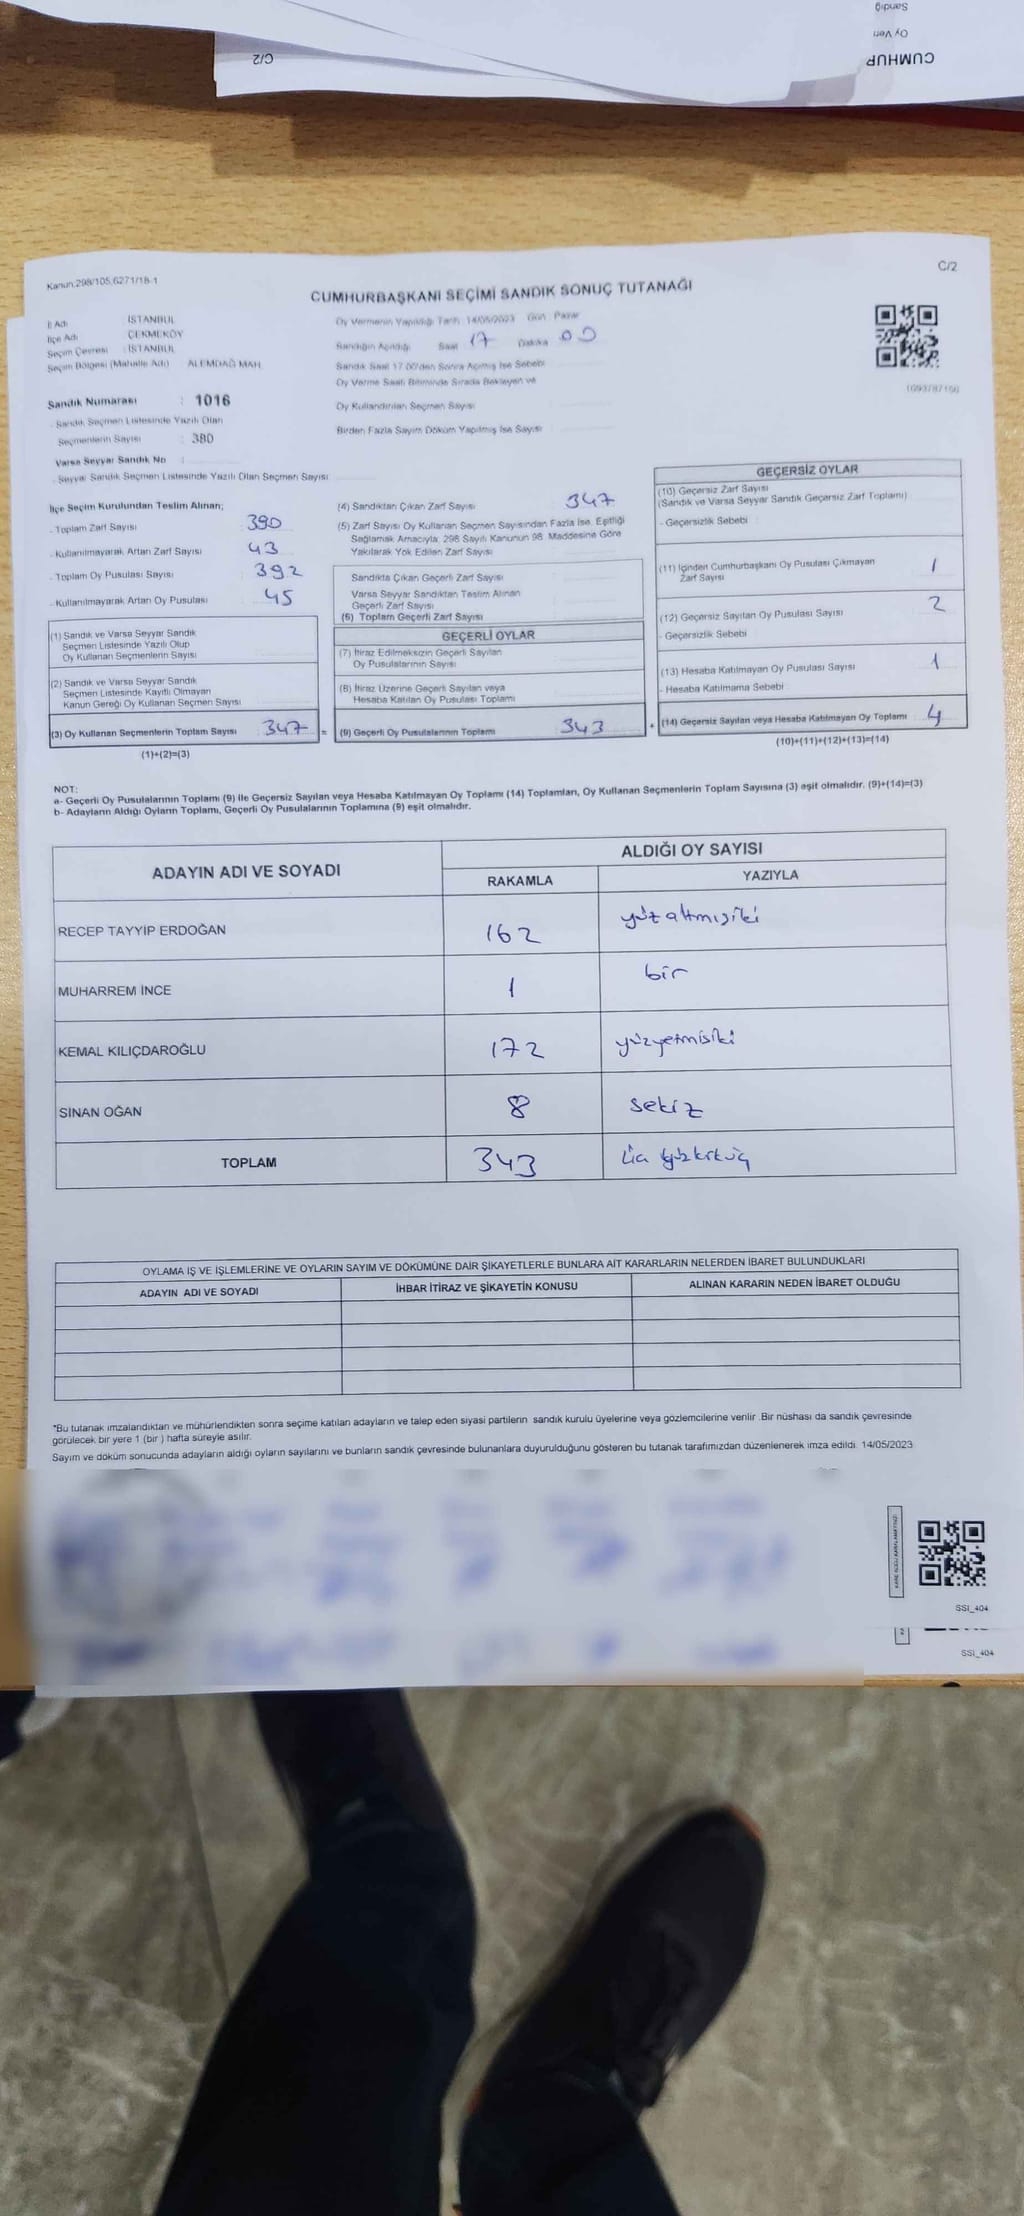 Sandığ
Oy Ven
CUMHUR
C/2
Kanun.298/105,6271/18-1
C/2
CUMHURBAŞKANI SEÇİMİ SANDIK SONUÇ TUTANAĞI
İl Adı : İSTANBUL
İlçe Adı : ÇEKMEKÖY
Seçim Çevresi : İSTANBUL
Seçim Bölgesi (Mahalle Adı) ALEMDAĞ MAH.
Oy Vermenin Yapıldığı Tarih : 14/05/2023 Gün : Pazar
Sandığın Açıldığı Saat 17 Dakika 00
Sandık Saat 17.00'den Sonra Açılmış İse Sebebi
Oy Verme Saati Bitiminde Sırada Bekleyen ve
Oy Kullandırılan Seçmen Sayısı
Birden Fazla Sayım Döküm Yapılmış İse Sayısı
Sandık Numarası : 1016
- Sandık Seçmen Listesinde Yazılı Olan
Seçmenlerin Sayısı : 380
Varsa Seyyar Sandık No :
- Seyyar Sandık Seçmen Listesinde Yazılı Olan Seçmen Sayısı
İlçe Seçim Kurulundan Teslim Alınan;
- Toplam Zarf Sayısı 390
- Kullanılmayarak Artan Zarf Sayısı 43
- Toplam Oy Pusulası Sayısı 392
- Kullanılmayarak Artan Oy Pusulası 45
(1) Sandık ve Varsa Seyyar Sandık
Seçmen Listesinde Yazılı Olup
Oy Kullanan Seçmenlerin Sayısı
(2) Sandık ve Varsa Seyyar Sandık
Seçmen Listesinde Kayıtlı Olmayan
Kanun Gereği Oy Kullanan Seçmen Sayısı
(3) Oy Kullanan Seçmenlerin Toplam Sayısı 347 =
(1)+(2)=(3)
(4) Sandıktan Çıkan Zarf Sayısı 347
(5) Zarf Sayısı Oy Kullanan Seçmen Sayısından Fazla İse, Eşitliği
Sağlamak Amacıyla, 298 Sayılı Kanunun 98. Maddesine Göre
Yakılarak Yok Edilen Zarf Sayısı
Sandıkta Çıkan Geçerli Zarf Sayısı
Varsa Seyyar Sandıktan Teslim Alınan
Geçerli Zarf Sayısı
(6) Toplam Geçerli Zarf Sayısı
GEÇERLİ OYLAR
(7) İtiraz Edilmeksizin Geçerli Sayılan
Oy Pusulalarının Sayısı
(8) İtiraz Üzerine Geçerli Sayılan veya
Hesaba Katılan Oy Pusulası Toplamı
(9) Geçerli Oy Pusulalarının Toplamı 343 +
GEÇERSİZ OYLAR
(10) Geçersiz Zarf Sayısı
(Sandık ve Varsa Seyyar Sandık Geçersiz Zarf Toplamı)
- Geçersizlik Sebebi
(11) İçinden Cumhurbaşkanı Oy Pusulası Çıkmayan
Zarf Sayısı 1
(12) Geçersiz Sayılan Oy Pusulası Sayısı 2
- Geçersizlik Sebebi
(13) Hesaba Katılmayan Oy Pusulası Sayısı 1
- Hesaba Katılmama Sebebi
(14) Geçersiz Sayılan veya Hesaba Katılmayan Oy Toplamı 4
(10)+(11)+(12)+(13)=(14)
NOT:
a- Geçerli Oy Pusulalarının Toplamı (9) ile Geçersiz Sayılan veya Hesaba Katılmayan Oy Toplamı (14) Toplamları, Oy Kullanan Seçmenlerin Toplam Sayısına (3) eşit olmalıdır. (9)+(14)=(3)
b- Adayların Aldığı Oyların Toplamı, Geçerli Oy Pusulalarının Toplamına (9) eşit olmalıdır.
ADAYIN ADI VE SOYADI
ALDIĞI OY SAYISI
RAKAMLA YAZIYLA
RECEP TAYYİP ERDOĞAN 162 yüzaltmışiki
MUHARREM İNCE 1 bir
KEMAL KILIÇDAROĞLU 172 yüzyetmişiki
SİNAN OĞAN 8 sekiz
TOPLAM 343 üç yüzkırküç
OYLAMA İŞ VE İŞLEMLERİNE VE OYLARIN SAYIM VE DÖKÜMÜNE DAİR ŞİKAYETLERLE BUNLARA AİT KARARLARIN NELERDEN İBARET BULUNDUKLARI
ADAYIN ADI VE SOYADI İHBAR İTİRAZ VE ŞİKAYETİN KONUSU ALINAN KARARIN NEDEN İBARET OLDUĞU
*Bu tutanak imzalandıktan ve mühürlendikten sonra seçime katılan adayların ve talep eden siyasi partilerin sandık kurulu üyelerine veya gözlemcilerine verilir .Bir nüshası da sandık çevresinde
görülecek bir yere 1 (bir ) hafta süreyle asılır.
Sayım ve döküm sonucunda adayların aldığı oyların sayılarını ve bunların sandık çevresinde bulunanlara duyurulduğunu gösteren bu tutanak tarafımızdan düzenlenerek imza edildi. 14/05/2023
SSI_404
2
SSI_404